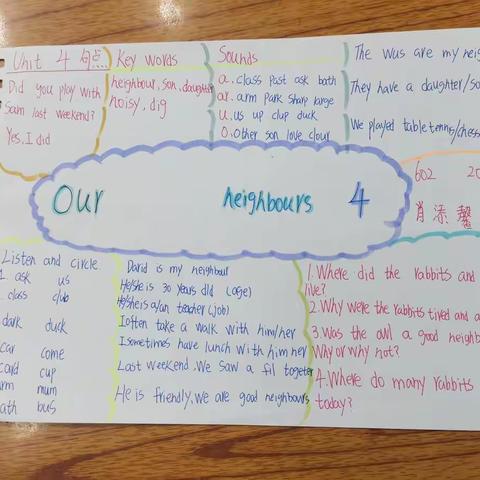 Unit 4 句点
Did you play with
Sam last weekend?
Yes, I did
Key words
neighbour, son, daughter
noisy, dig
Sounds
a. class past ask bath
ar. arm park sharp large
u. us up club duck
o. other son love clour
The Wus are my neig
They have a daughter/so
We played table tennis/chess
Our neighbours 4
602 20
肖添馨
Listen and circle
1 ask us
class club
dark duck
car come
card cup
arm mum
ath bus
David is my neighbour
He/she is 30 years old (age)
He/she is a/an teacher (job)
I often take a walk with him/her
I sometimes have lunch with him her
Last weekend, We saw a fil togeter
He is friendly, we are good neighbours
1. Where did the rabbits and
live?
2. Why were the rabbits tired and a
3. Was the owl a good neighb
Why or why not?
4. Where do many rabbits
today?